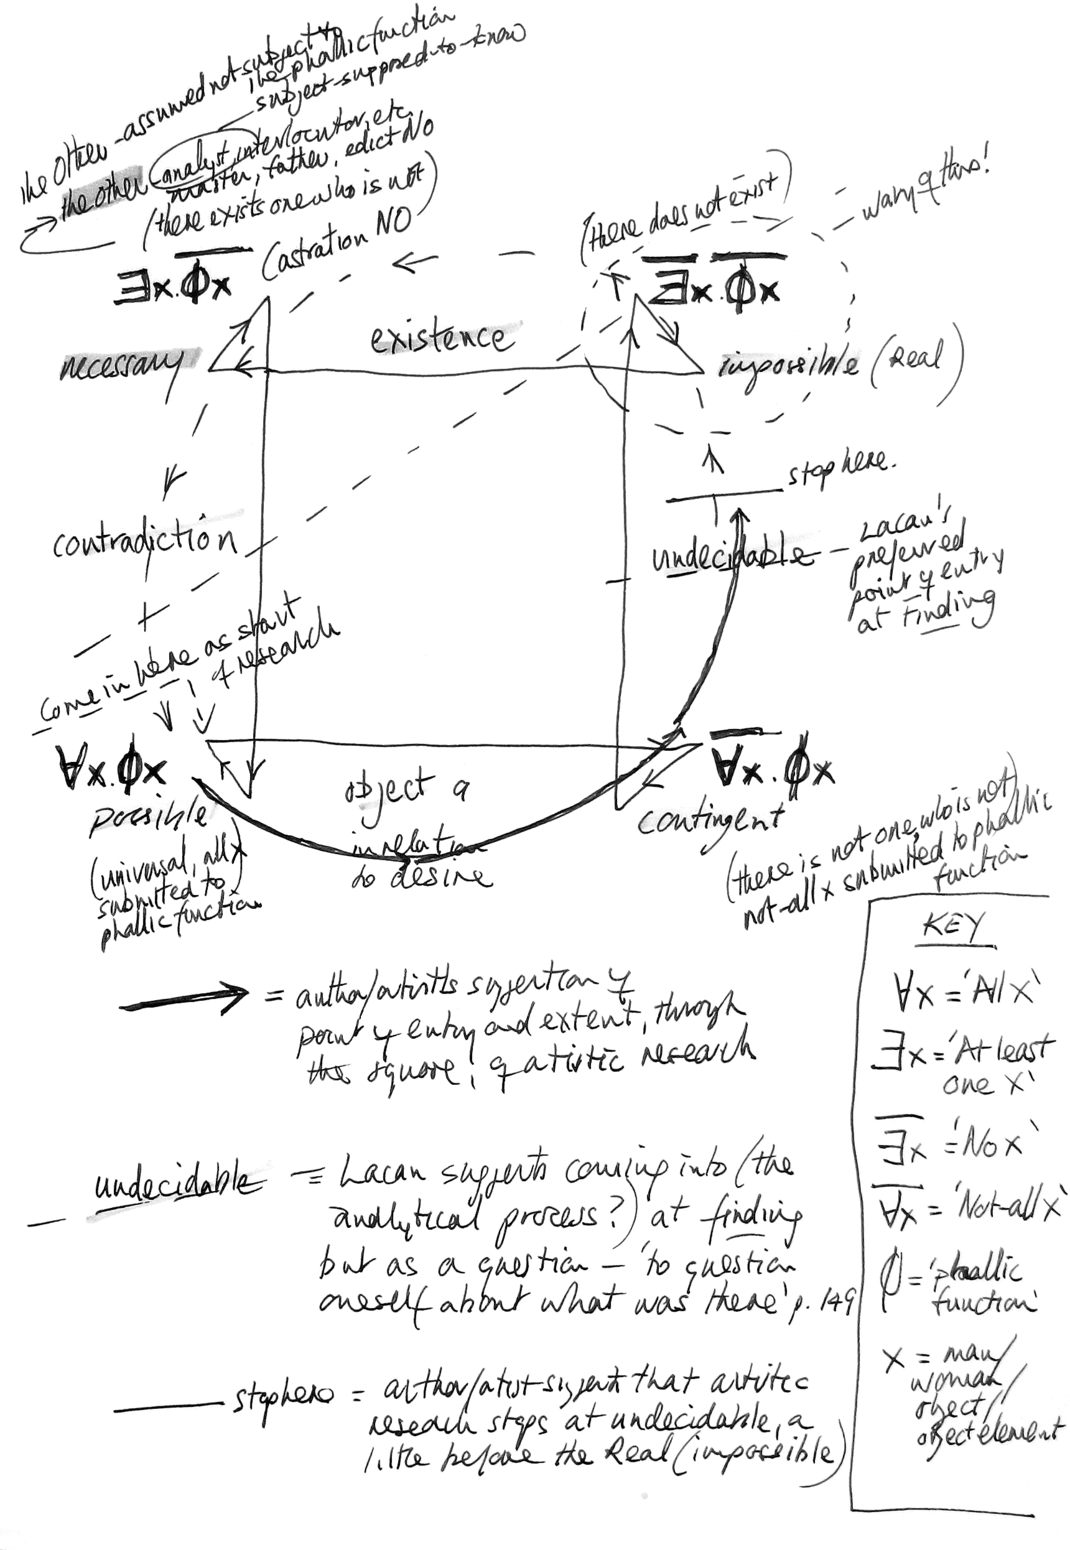 the other - assumed not subject to
the phallic function
subject-supposed-to-know
the other - analyst, interlocutor, etc
master, father, edict No
(there exists one who is not)
∃x.Φ̅x̅
Castration NO
(there does not exist)
wary of this!
∃̅x̅.Φ̅x̅
necessary
existence
impossible (Real)
stop here.
contradiction
undecidable - Lacan's
preferred
point of entry
at finding
Come in here as start
of research
∀x.Φx
possible
(universal, all x
submitted to)
phallic function
object a
in relation
to desire
∀̅x̅.Φx
contingent
(there is not one, who is not)
not-all x submitted to phallic
function
= author/artist's suggestion of
point of entry and extent, through
the square, of artistic research
undecidable = Lacan suggests coming into (the
analytical process?) at finding
but as a question – 'to question
oneself about what was there' p. 149
stop here = author/artist suggests that artistic
research stops at undecidable, a
little before the Real (impossible)
KEY
∀x = 'All x'
∃x = 'At least
one x'
∃̅x̅ = 'No x'
∀̅x̅ = 'Not-all x'
Φ = 'phallic
function'
x = man/
woman/
object/
object element